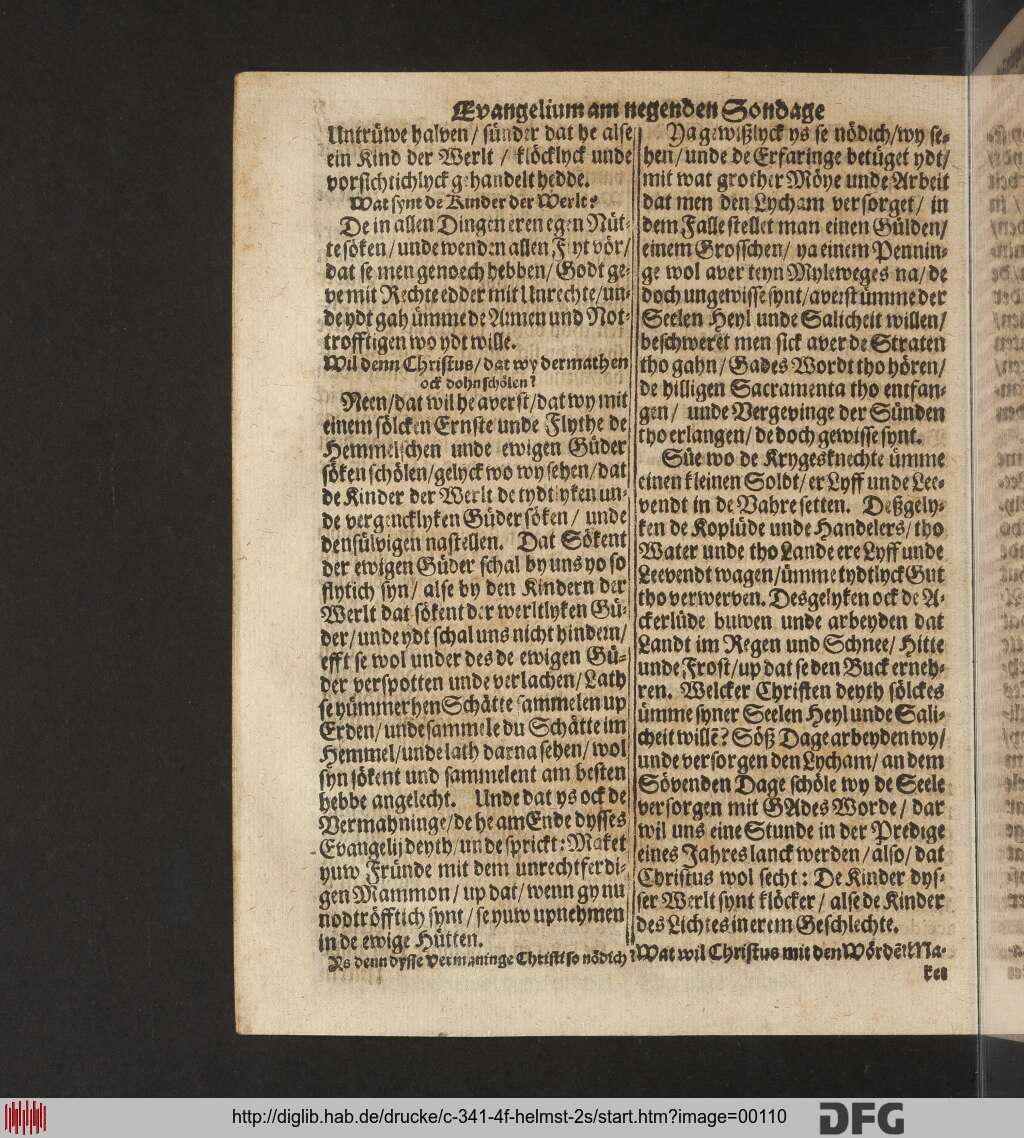 Evangelium am negenden Sondage
Untrüwe halven / sünder dat he alse
ein Kind der Werlt / klöcklyck unde
vorsichtichlyck gehandelt hedde.
Wat synt de Kinder der Werlt?
De in allen Dingen eren egen Nüt-
te söken / unde wenden allen Flyt vör /
dat se men genoech hebben / Godt ge-
ve mit Rechte edder mit Unrechte / un-
de ydt gah ümme de Armen und Not-
trofftigen wo ydt wille.
Wil denn Christus / dat wy dermathen
ock dohn schölen?
Neen / dat wil he averst / dat wy mit
einem sölcken Ernste unde Flythe de
Hemmelschen unde ewigen Güder
söken schölen / gelyck wo wy sehen / dat
de Kinder der Werlt de tydtlyken un-
de vergencklyken Güder söken / unde
densülvigen nastellen. Dat Sökent
der ewigen Güder schal by uns yo so
flytich syn / alse by den Kindern der
Werlt dat sökent der werltlyken Gü-
der / unde ydt schal uns nicht hindern /
efft se wol under des de ewigen Gü-
der verspotten unde verlachen / Lath
se yümmerhen Schätte sammelen up
Erden / unde sammele du Schätte im
Hemmel / unde lath darna sehen / wol
syn sökent und sammelent am besten
hebbe angelecht. Unde dat ys ock de
Vermahninge / de he am Ende dysses
Evangelij deyth / unde sprickt: Maket
yuw Fründe mit dem unrechtferdi-
gen Mammon / up dat / wenn gy nu
nodtröfftich synt / se yuw upnehmen
in de ewige Hütten.
Ys denn dysse Vermaninge Christi so nödich?
Ya gewißlyck ys se nödich / wy se-
hen / unde de Erfaringe betüget ydt /
mit wat grother Möye unde Arbeit
dat men den Lycham versorget / in
dem Falle stellet man einen Gülden /
einem Grosschen / ya einem Pennin-
ge wol aver teyn Myleweges na / de
doch ungewisse synt / averst ümme der
Seelen Heyl unde Salicheit willen /
beschweret men sick aver de Straten
tho gahn / Gades Wordt tho hören /
de hilligen Sacramenta tho entfan-
gen / unde Vergevinge der Sünden
tho erlangen / de doch gewisse synt.
Süe wo de Krygesknechte ümme
einen kleinen Soldt / er Lyff unde Lee-
vendt in de Vahre setten. Deßgely-
ken de Koplüde unde Handelers / tho
Water unde tho Lande ere Lyff unde
Leevendt wagen / ümme tydtlyck Gut
tho verwerven. Desgelyken ock de A-
ckerlüde buwen unde arbeyden dat
Landt im Regen und Schnee / Hitte
unde Frost / up dat se den Buck erneh-
ren. Welcker Christen deyth sölckes
ümme syner Seelen Heyl unde Sali-
cheit willē? Söß Dage arbeyden wy /
unde versorgen den Lycham / an dem
Sövenden Dage schöle wy de Seele
versorgen mit GAdes Worde / dar
wil uns eine Stunde in der Predige
eines Jahres lanck werden / also / dat
Christus wol secht: De Kinder dys-
ser Werlt synt klöcker / alse de Kinder
des Lichtes in erem Geschlechte.
Wat wil Christus mit den Wördē: Ma-
ket
http://diglib.hab.de/drucke/c-341-4f-helmst-2s/start.htm?image=00110
DFG